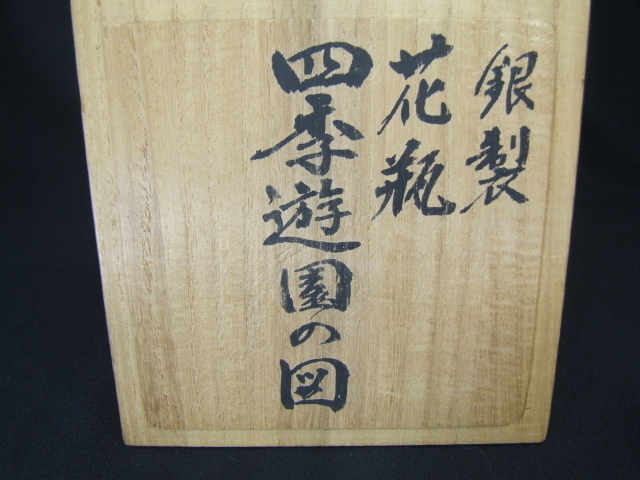 銀製
花瓶
四季遊園の図